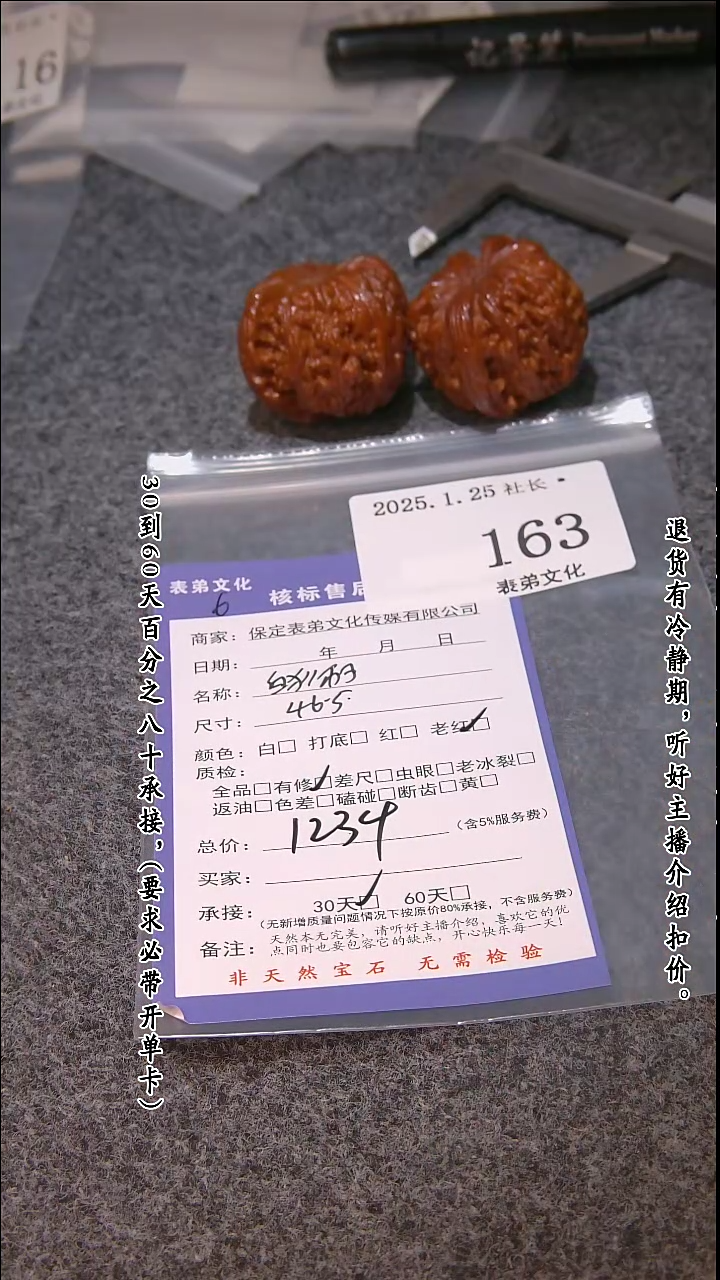 16
记号笔 Permanent Marker
2025.1.25 社长
163
表弟文化
表弟文化
6
核标售后
商家：保定表弟文化传媒有限公司
日期： 年 月 日
名称：
尺寸：46.5
颜色：白□ 打底□ 红□ 老红☑
质检：
全品□有修☑差尺□虫眼□老冰裂□
返油□色差□磕碰□断齿□黄□
总价：1234（含5%服务费）
买家：
承接：30天☑ 60天□
（无新增质量问题情况下按原价80%承接，不含服务费）
备注：天然本无完美，请听好主播介绍，喜欢它的优
点同时也要包容它的缺点，开心快乐每一天！
非天然宝石 无需检验
30到60天百分之八十承接，（要求必带开单卡）
退货有冷静期，听好主播介绍扣价。